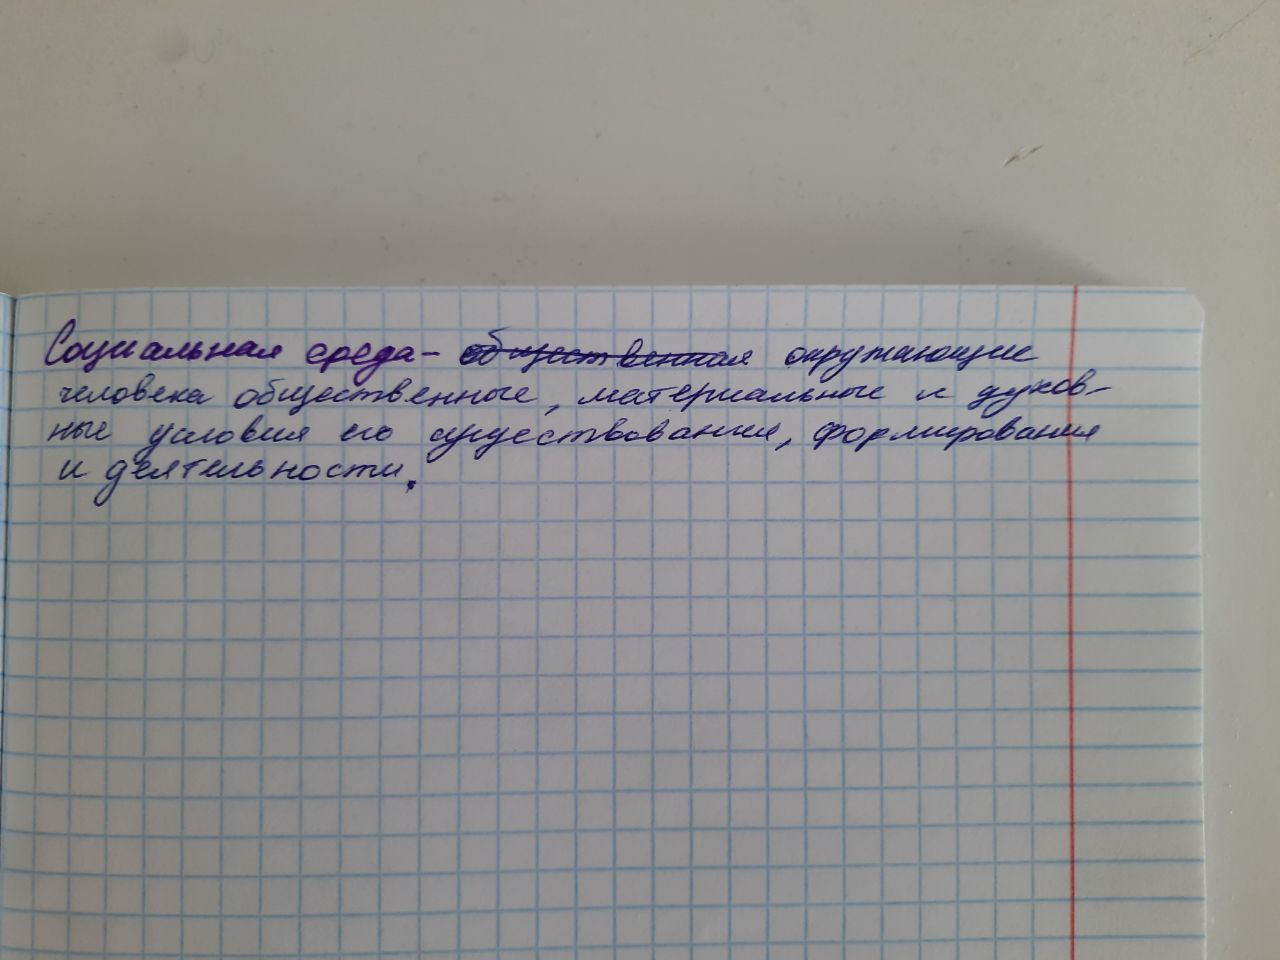 Социальная среда - общественная окружающие
человека общественные, материальные и духов-
ные условия его существования, формирования
и деятельности.